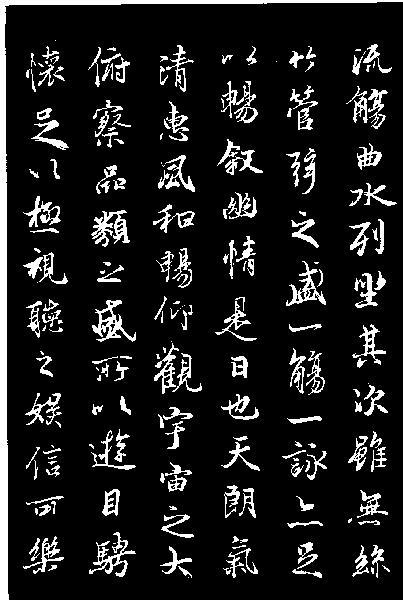 流觴曲水列坐其次雖無絲
竹管弦之盛一觴一詠亦足
以暢敘幽情是日也天朗氣
清惠風和暢仰觀宇宙之大
俯察品類之盛所以遊目騁
懷足以極視聽之娛信可樂